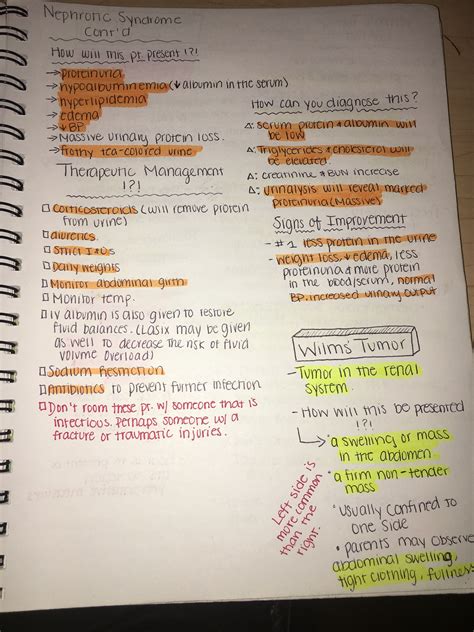 Nephrotic Syndrome
Cont'd
How will this pt. present?!
→ proteinuria
→ hypoalbuminemia (↓ albumin in the serum)
→ hyperlipidemia
→ edema
→ ↓ BP
→ Massive urinary protein loss.
→ frothy tea-colored urine
Therapeutic Management
!?!
□ Corticosteroids (will remove protein
from urine)
□ diuretics
□ Strict I&Os
□ Daily weights
□ Monitor abdominal girth
□ Monitor temp.
□ IV albumin is also given to restore
fluid balances. (Lasix may be given
as well to decrease the risk of fluid
volume overload)
□ Sodium Restriction
□ Antibiotics to prevent further infection
□ Don't room these pt. w/ someone that is
infectious. Perhaps someone w/ a
fracture or traumatic injuries.
How can you diagnose this?
Δ: serum protein & albumin will
be low
Δ: Triglycerides & cholesterol will
be elevated.
Δ: creatinine & BUN increase
Δ: urinalysis will reveal marked
proteinuria (Massive)
Signs of Improvement
- #1 less protein in the urine
- weight loss, ↓ edema, less
proteinuria & more protein
in the blood/serum, normal
BP, increased urinary output
Wilms' Tumor
- Tumor in the renal
system.
- How will this be presented
!?!
• a swelling or mass
in the abdomen.
• a firm non-tender
mass
• usually confined to
one side
• parents may observe
abdominal swelling,
tight clothing, fullness
Left side is
more common
than the
right.